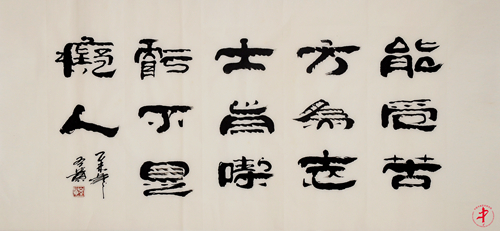 能受苦
方為志
士肯喫
虧不是
癡人
乙未年